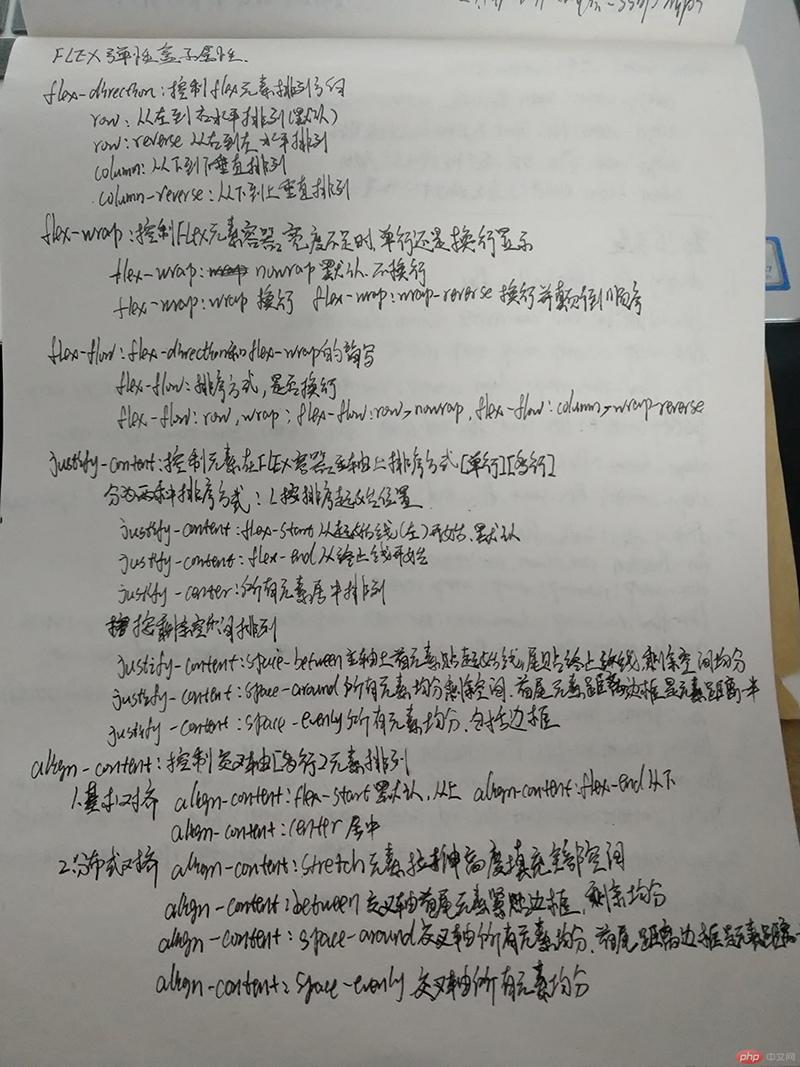 FLEX弹性盒子属性.
flex-direction:控制flex元素排列方向
row:从左到右水平排列(默认)
row:reverse 从右到左水平排列
column:从下到下垂直排列
column-reverse:从下到上垂直排列
flex-wrap:控制FLEX元素容器宽度不足时,单行还是换行显示
flex-wrap: nowrap 默认.不换行
flex-wrap:wrap 换行 flex-wrap:wrap-reverse 换行并颠倒顺序
flex-flow:flex-direction和flex-wrap的简写
flex-flow:排序方式,是否换行
flex-flow:row,wrap;flex-flow:row,nowrap,flex-flow:column,wrap-reverse
justify-content:控制元素在FLEX容器主轴上排序方式[单行][多行]
分为两种排序方式:1.按排序起始位置
justify-content:flex-start从起始线(左)开始.默认
justify-content:flex-end从终止线开始
justify-conter:所有元素居中排列
按剩余空间排列
justify-content:space-between主轴上首元素贴起始线,尾贴终止线,剩余空间均分
justify-content:space-around所有元素均分剩余空间.首尾元素距离边框是元素距离一半
justify-content:space-evenly所有元素均分,包括边框
align-content:控制交叉轴[多行]元素排列
1.基本对齐 align-content:flex-start默认,从上 align-content:flex-end从下
align-content:center居中
2.分布式对齐 align-content:stretch元素拉伸高度填充全部空间
align-content:between交叉轴首尾元素紧贴边框,剩余均分
align-content:space-around交叉轴所有元素均分.首尾距离边框是元素距离一
align-content:space-evenly交叉轴所有元素均分
php 中文网